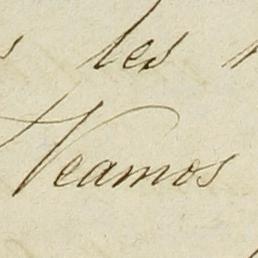 les
Veamos